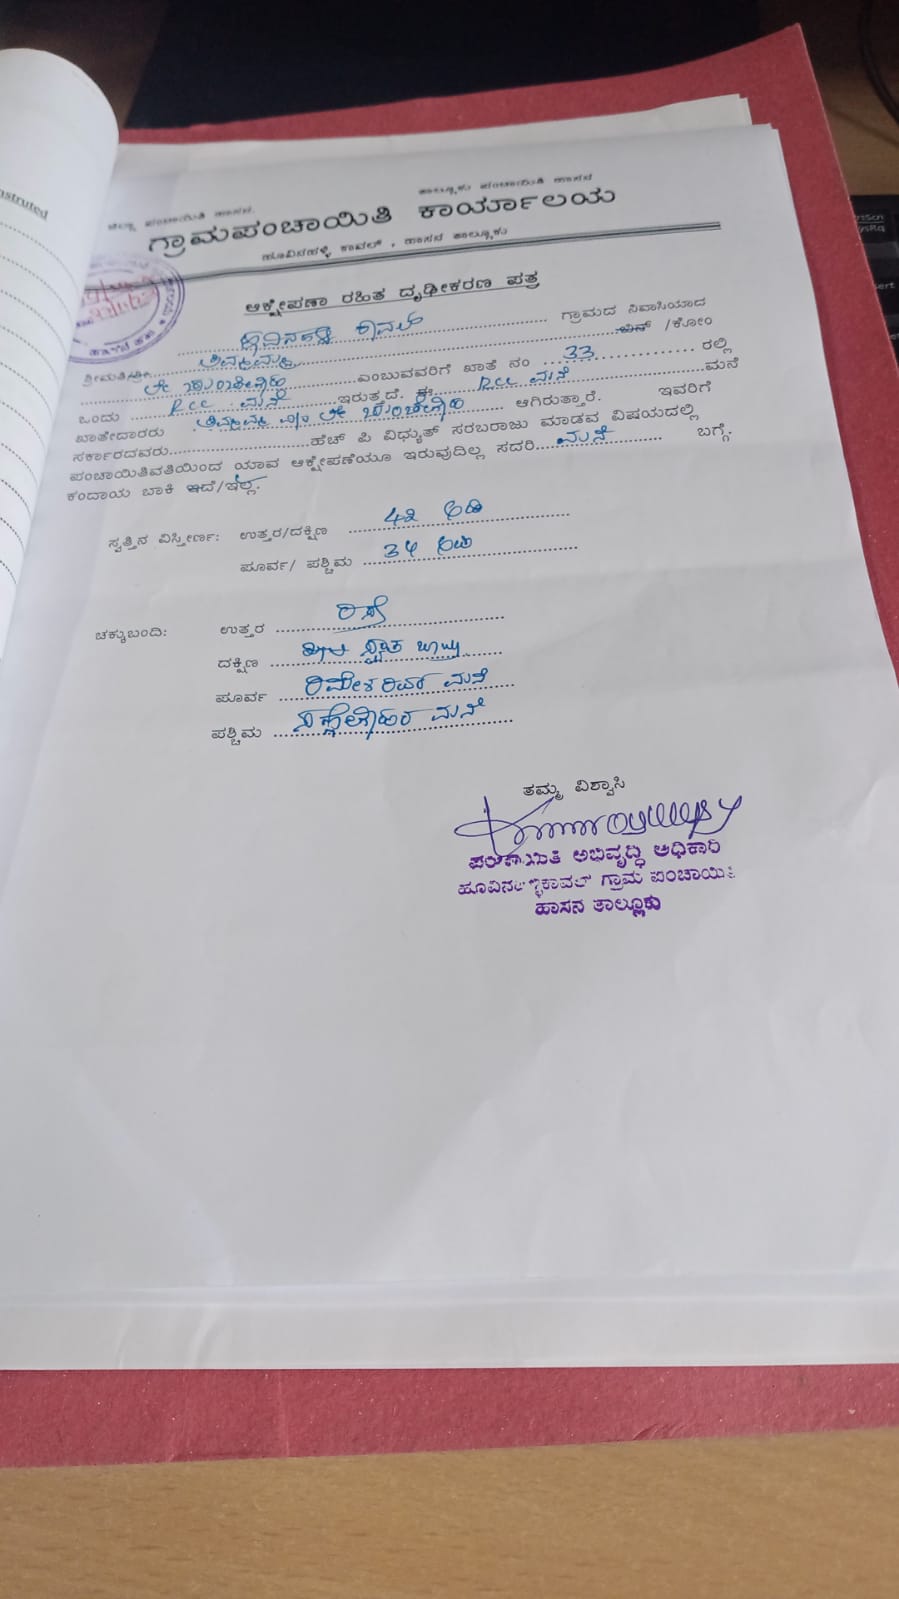 nstruted
ಜಿಲ್ಲಾ ಪಂಚಾಯಿತಿ ಹಾಸನ. ತಾಲ್ಲೂಕು ಪಂಚಾಯಿತಿ ಹಾಸನ
ಗ್ರಾಮಪಂಚಾಯಿತಿ ಕಾರ್ಯಾಲಯ
ಹೂವಿನಹಳ್ಳಿ ಕಾವಲ್ , ಹಾಸನ ತಾಲ್ಲೂಕು
ಆಕ್ಷೇಪಣಾ ರಹಿತ ದೃಢೀಕರಣ ಪತ್ರ
ಹೂವಿನಹಳ್ಳಿ ಕಾವಲ್ ಗ್ರಾಮದ ನಿವಾಸಿಯಾದ
ಶ್ರೀಮತಿ/ಶ್ರೀ ತಿಮ್ಮಮ್ಮ ಬಿನ್ /ಕೋಂ
ಎಂಬುವವರಿಗೆ ಖಾತೆ ನಂ 33 ರಲ್ಲಿ
ಒಂದು RCC ಮನೆ ಇರುತ್ತದೆ. ಈ RCC ಮನೆ ಮನೆ
ಖಾತೇದಾರರು ತಿಮ್ಮಮ್ಮ ಆಗಿರುತ್ತಾರೆ. ಇವರಿಗೆ
ಸರ್ಕಾರದವರು ಹೆಚ್ ಪಿ ವಿಧ್ಯುತ್ ಸರಬರಾಜು ಮಾಡವ ವಿಷಯದಲ್ಲಿ
ಪಂಚಾಯಿತಿವತಿಯಿಂದ ಯಾವ ಆಕ್ಷೇಪಣೆಯೂ ಇರುವುದಿಲ್ಲ ಸದರಿ ಮನೆ ಬಗ್ಗೆ
ಕಂದಾಯ ಬಾಕಿ ಇದೆ/ಇಲ್ಲ.
ಸ್ವತ್ತಿನ ವಿಸ್ತೀರ್ಣ: ಉತ್ತರ/ದಕ್ಷಿಣ 42 ಅಡಿ
ಪೂರ್ವ/ ಪಶ್ಚಿಮ 34 ಅಡಿ
ಚಕ್ಕುಬಂದಿ: ಉತ್ತರ ರಸ್ತೆ
ದಕ್ಷಿಣ
ಪೂರ್ವ ಮನೆ
ಪಶ್ಚಿಮ ಮನೆ
ತಮ್ಮ ವಿಶ್ವಾಸಿ
ಪಂಚಾಯಿತಿ ಅಭಿವೃದ್ಧಿ ಅಧಿಕಾರಿ
ಹೂವಿನಹಳ್ಳಿಕಾವಲ್ ಗ್ರಾಮ ಪಂಚಾಯಿತಿ
ಹಾಸನ ತಾಲ್ಲೂಕು